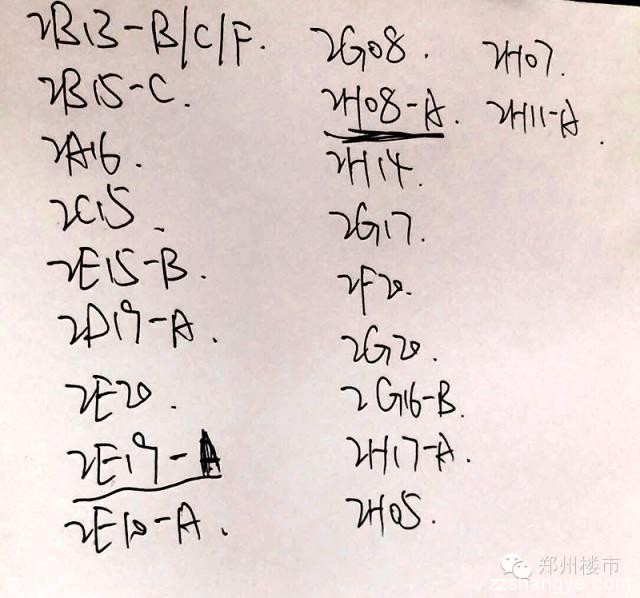 2B13-B/C/F.
2B15-C.
2A16.
2C15.
2E15-B.
2D19-A.
2E20.
2E19-A
2E10-A.
2G08.
2H08-A.
2H14.
2G17.
2F20.
2G20.
2G16-B.
2H17-A.
2H05.
2H07.
2H11-A.
郑州楼市
zzshangye.com